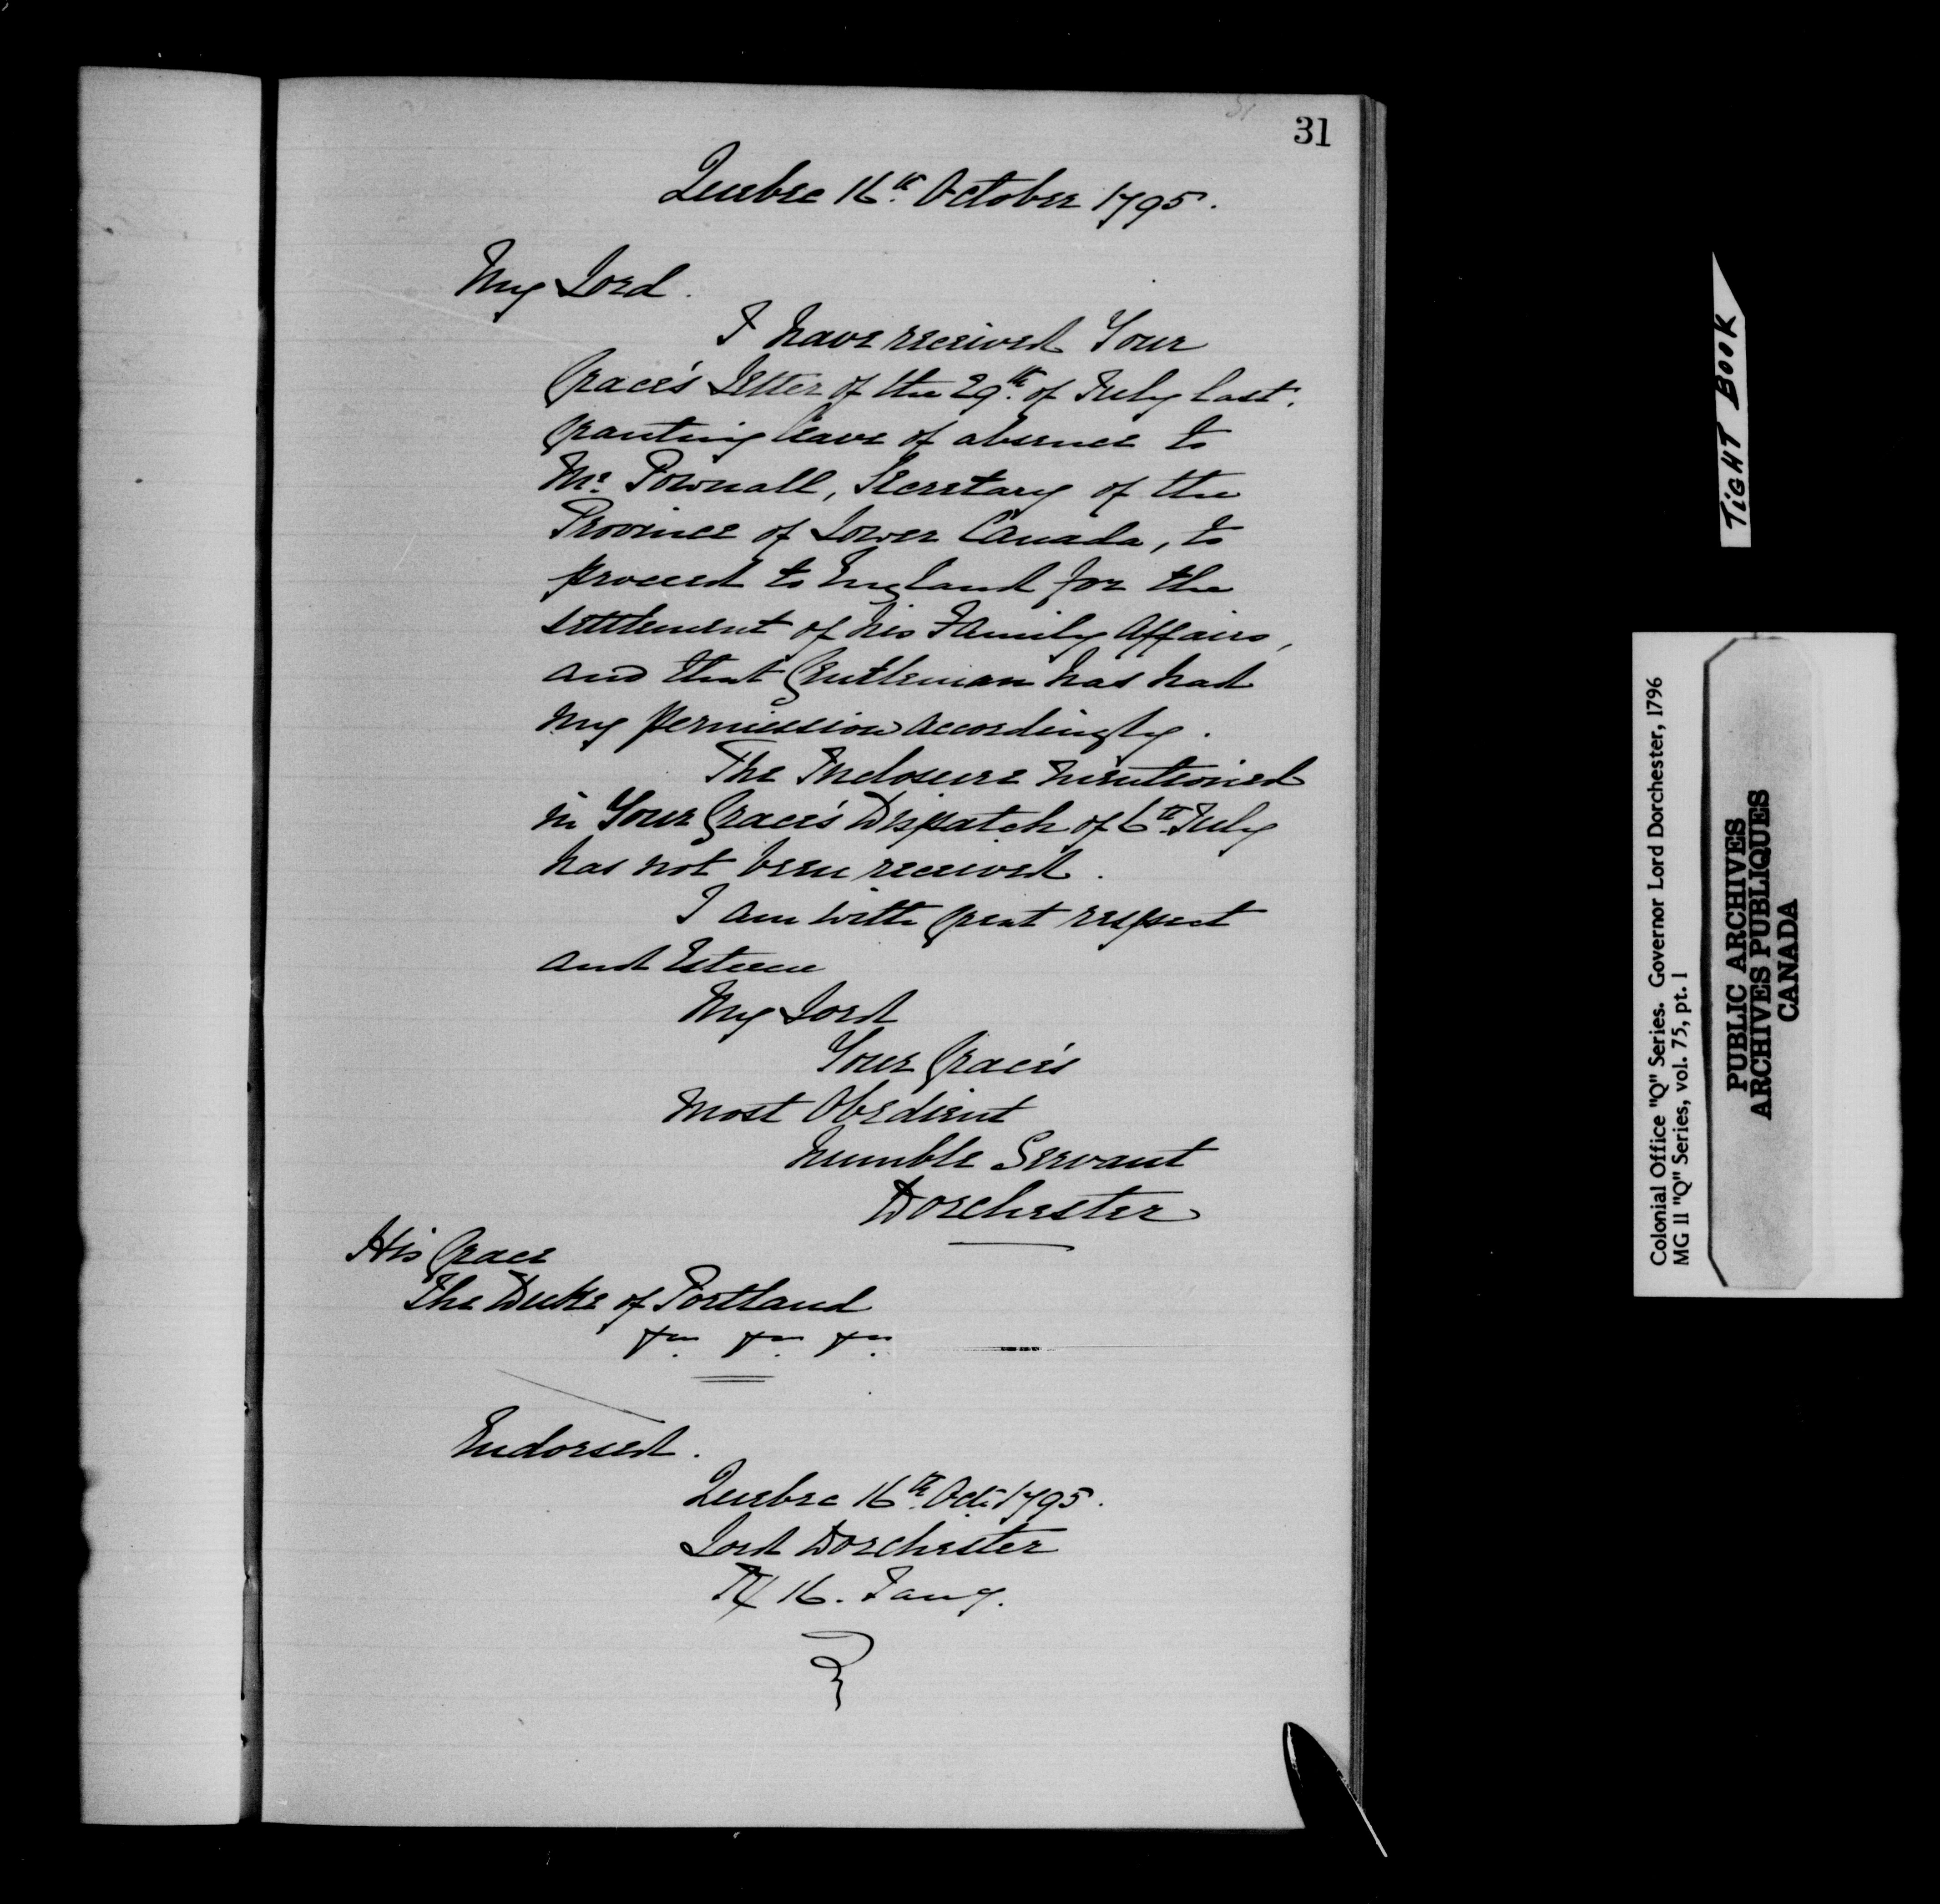 31
31
Quebec 16th. October 1795.
My Lord.
I have received Your
Grace's Letter of the 29th. of July last.
granting leave of absence to
Mr. Pownall, Secretary of the
Province of Lower Canada, to
proceed to England for the
settlement of his Family Affairs,
and that Gentleman has had
my permission accordingly.
The Inclosure mentioned
in Your Grace's Dispatch of 6th. July
has not been received.
I am with great respect
and Esteem
My Lord
Your Grace's
Most Obedient
humble Servant
Dorchester
His Grace
The Duke of Portland
&c. &c. &c.
Endorsed.
Quebec 16th. Oct: 1795.
Lord Dorchester
16. Jany.
TIGHT BOOK
Colonial Office "Q" Series. Governor Lord Dorchester, 1796
MG 11 "Q" Series, vol. 75, pt. 1
PUBLIC ARCHIVES
ARCHIVES PUBLIQUES
CANADA